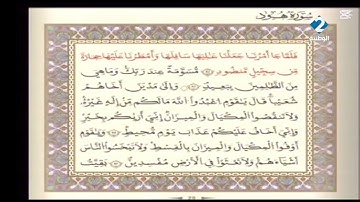 سورة هود
الوطنية 2
فلما جاء أمرنا جعلنا عليها سافلها وأمطرنا عليها حجارة
من سجيل منضود مسومة عند ربك وما هي
من الظلمين ببعيد وإلى مدين أخاهم
شعيبا قال يقوم اعبدوا الله ما لكم من إله غيره
ولا تنقصوا المكيال والميزان إني أريكم بخير
وإني أخاف عليكم عذاب يوم محيط ويقوم
أوفوا المكيال والميزان بالقسط ولا تبخسوا الناس
أشياءهم ولا تعثوا في الأرض مفسدين بقيت